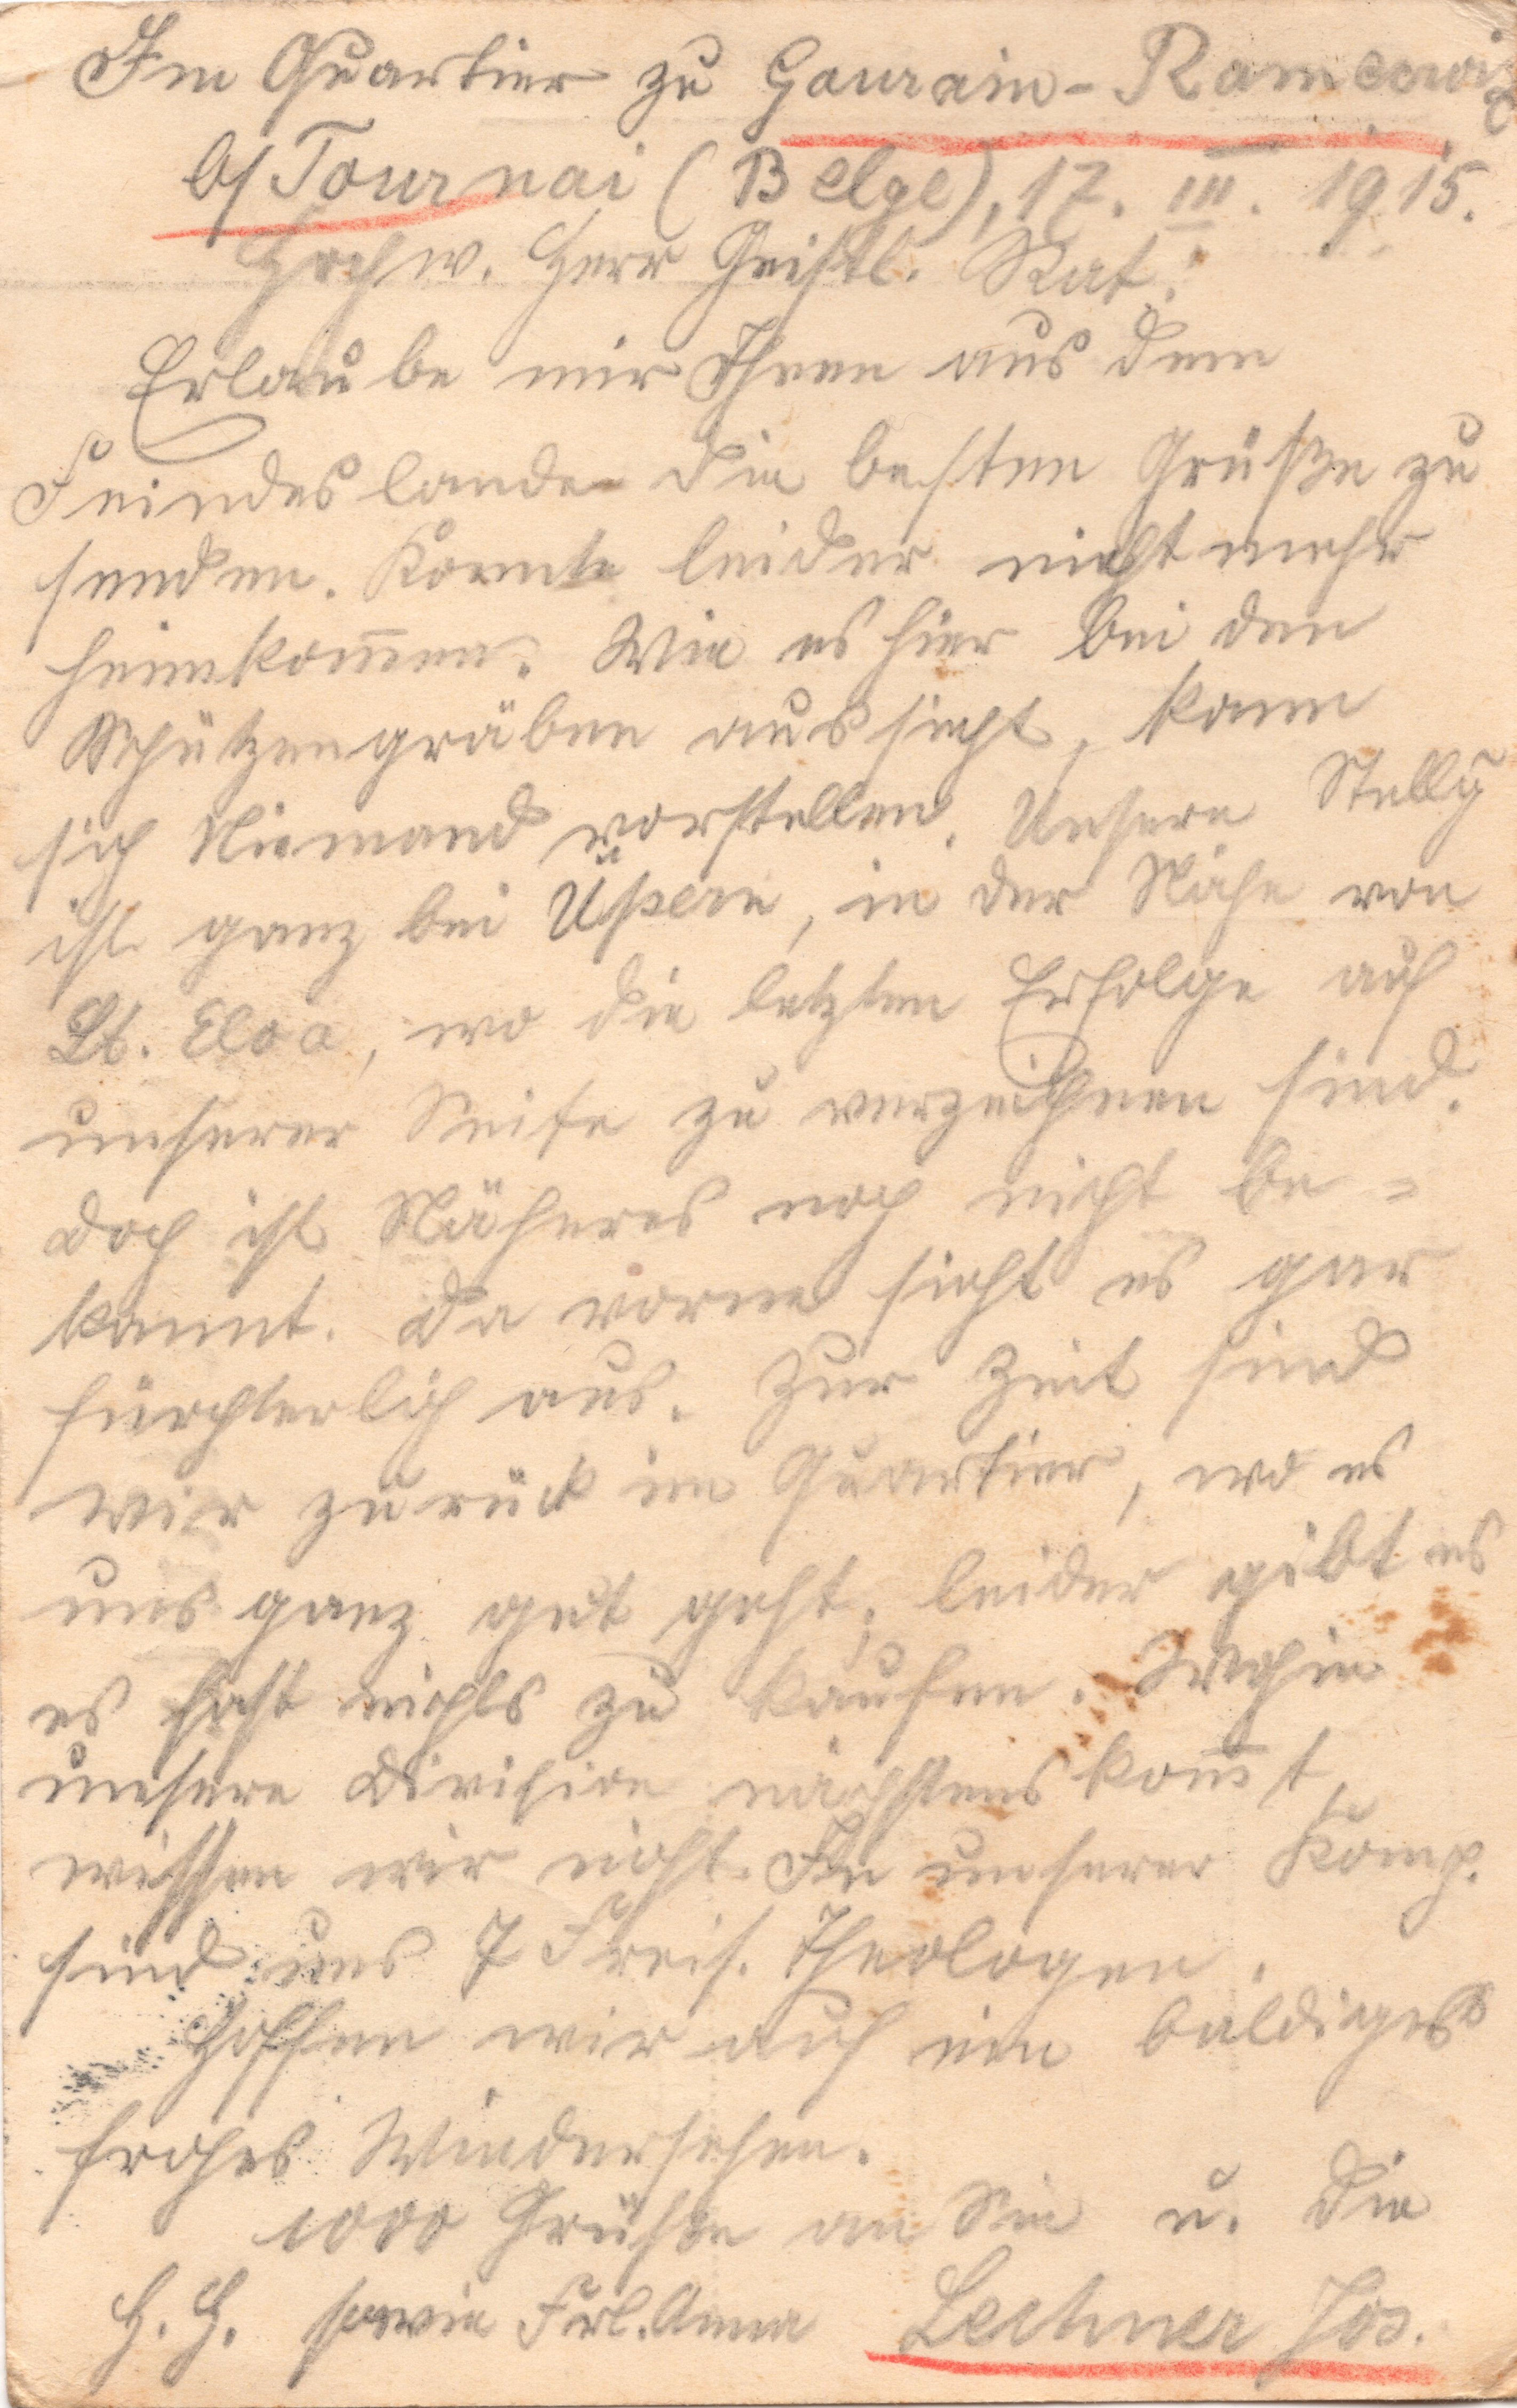 Im Quartier zu Gaurain-Ramecroix
b/ Tournai (Belge), 17. III. 1915.
Hochw. Herr Geistl. Rat!
Erlaube mir Ihnen aus dem
Feindeslande die besten Grüße zu
senden. Konnte leider nicht mehr
heimkom̅en. Wie es hier bei den
Schützengräben aussieht, kann
sich Niemand vorstellen. Unsere Stellg
ist ganz bei Üpern, in der Nähe von
St. Eloa, wo die letzten Erfolge auf
unserer Seite zu verzeichnen sind.
Doch ist Näheres noch nicht be=
kannt. Da vorne sieht es gar
fürchterlich aus. Zur Zeit sind
wir zurück im Quartier, wo es
uns ganz gut geht; leider gibt es
es fast nichts zu kaufen. Wohin
unsere Division nächstens kom̅t,
wissen wir nicht. In unserer Komp.
sind uns 7 Freis. Theologen.
Hoffen wir auf ein baldiges
frohes Wiedersehen.
1000 Grüße an Sie u. die
H. H. sowie Frl. Anna Lechner Jos.